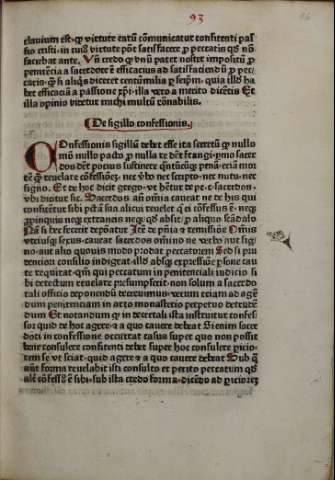 93
clauium est q̄ virtute earū cōmunicatur confitenti pas
sio cristi in cuiꝰ virtute pōt satisfacere p̱ peccatis qđ nō
faciebat ante. Vn̄ credo q̄ vnū pater noster impositū p̱
penitēcia a sacerdote ē efficacius ad satisfaciendū p̱ pec-
catis q̄ si aliqͥs diceret centūmilia p̱ seipm̄. quia illđ ha
bet efficaciā a passione xp̄i illa vero a merito dicētis Et
illa opinio videtur michi multū cōnabilis.
De sigillo confessionis.
COnfessionis sigillū debet esse ita secretū q̄ nullo
mō nullo pacto p̱ nulla re debet frangi ymo sacer
dos debet pocius sustinere quācūqꝫ penā eciā mor
tē q̄ reuelare cōfessiōeꝫ nec v̓bo nec scripto nec nutu nec
signo. Et de hoc dicit grego. vt hētur de pe. c. sacerdos.
vbi dicitur sic. Sacerdos an̄ omīa caueat ne de his qui
confitentur sibi pctā sua alicui reuelet
ꝓpinquis neqꝫ extraneis neqꝫ qđ absit p̱ aliquo scādalo
Nā si hec fecerit depōatur Itē de pn̄ia ⁊ remissiōe Omīs
vtriusqꝫ sexus. caueat sacerdos omīno ne verbo aut sig-
no. aut alio quouis modo prodat peccatorem Sed si pru
dentiori consilio indigeat illđ absqꝫ expressiōe p̱sone cau
te requirat. qm̄ qui peccatum in penitenciali iudicio si
bi detectum reuelare presumpserit. non solum a sacerdo
tali officio deponendū decreuimus. verum eciam ad agē
dum penitenciam in arto monasterio perpetuo detruden
dum Et notandum q̄ in decretali ista instruitur confes-
sor quid de hoc agere ⁊ a quo cauere debeat Si enim sacer
doti in confessione occurrat casus super quo non possit
bene consulere confitenti debet super hoc consulere pericio-
rem se vt sciat quid agere ⁊ a quo cauere debeat
aūt forma reuelabit isti consulto et perito peccatum qđ
sub ista credo forma. dicēdo ad pericioreꝫ